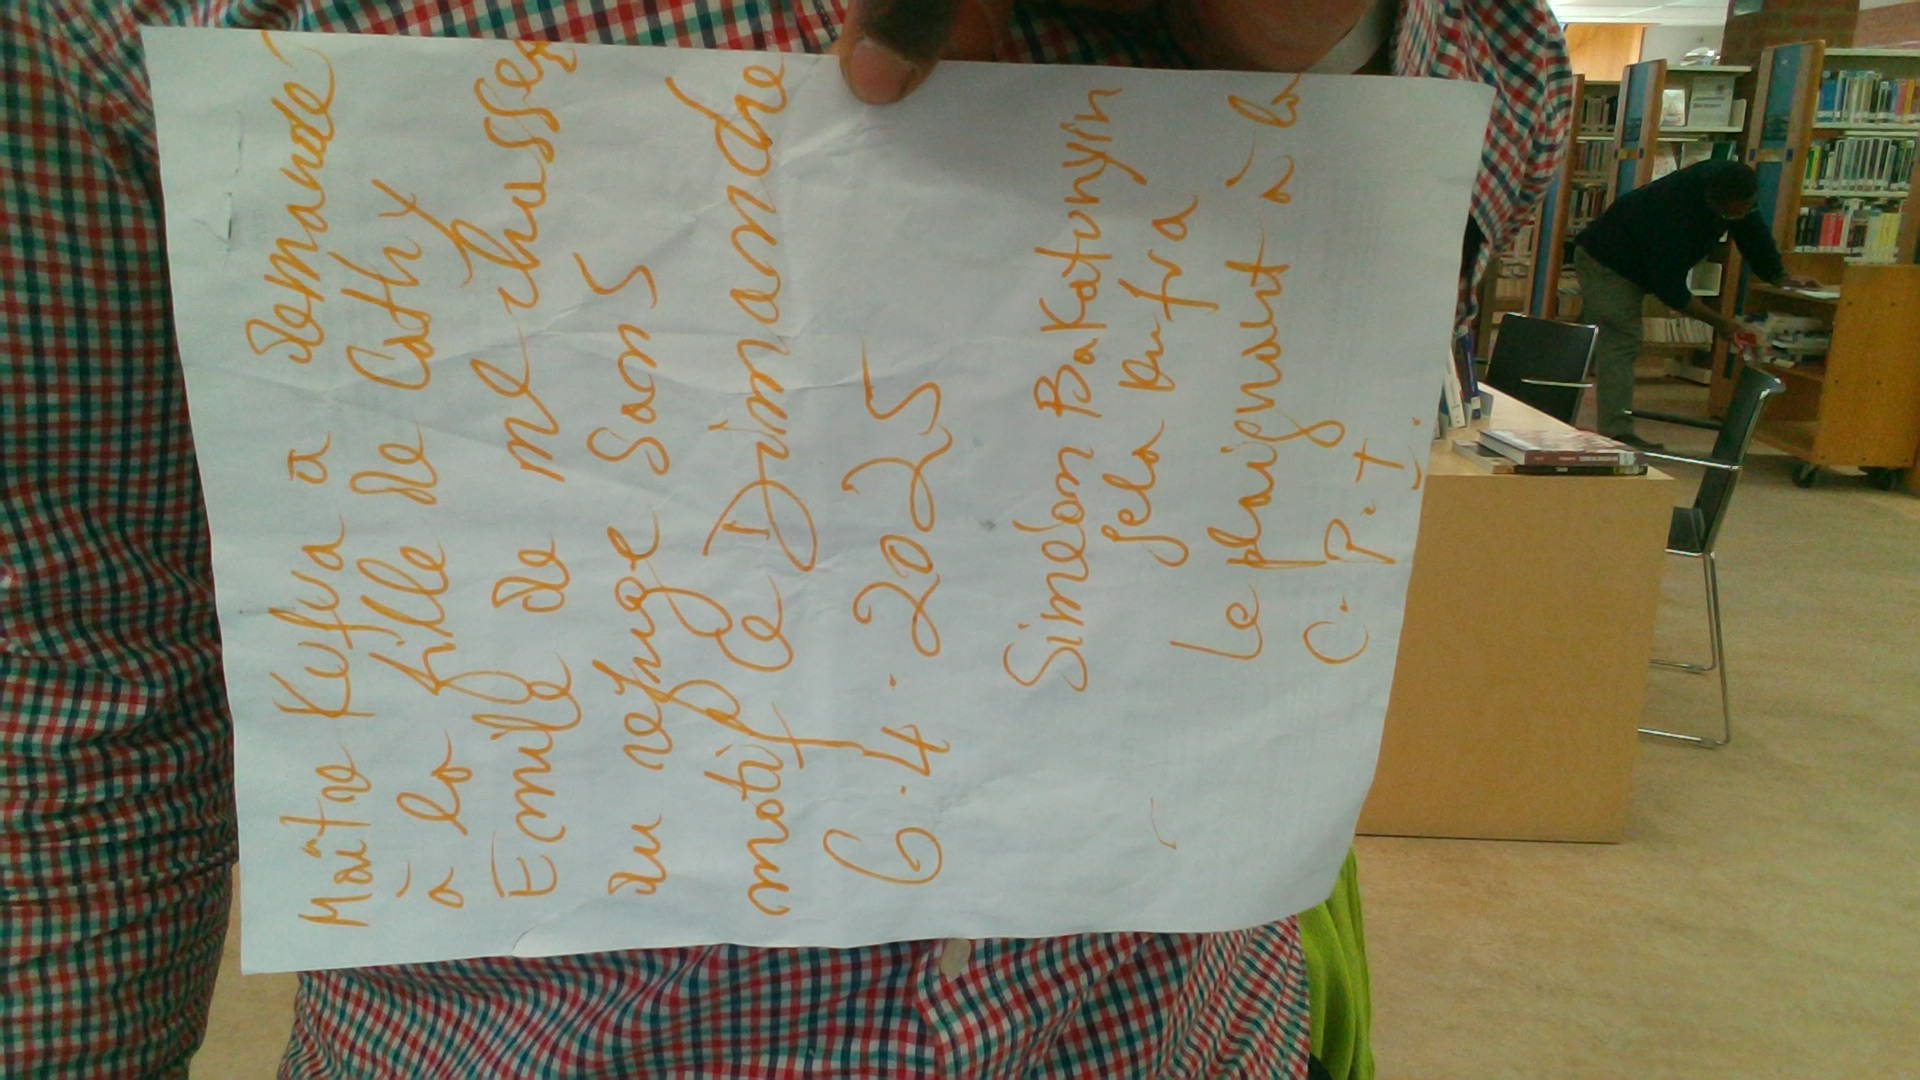 Maître Kufua a demandé
à la fille de Cathy
Emile de me chasser
du refuge sans
motif ce Dimanche
6.4.2025
Siméon Bakatunyin
gela Dufra
Le plaignant à la
C.P.I.